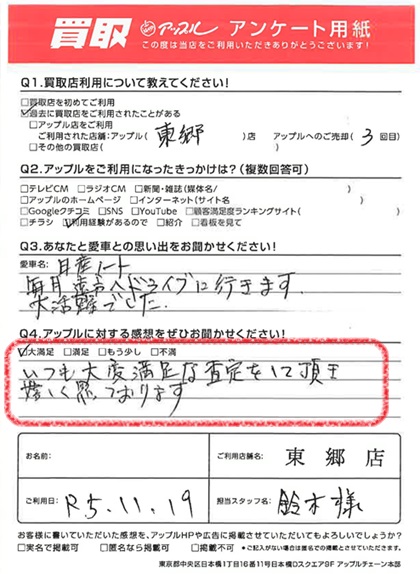 買取 アップル アンケート用紙
この度は当店をご利用いただきありがとうございます!
Q1.買取店利用について教えてください!
□買取店を初めてご利用
☑過去に買取店をご利用されたことがある
□アップル店をご利用
ご利用された店舗:アップル( 東郷 )店 アップルへのご売却( 3 回目)
□その他の買取店( )
Q2.アップルをご利用になったきっかけは?(複数回答可)
□テレビCM □ラジオCM □新聞・雑誌(媒体名/ )
□アップルのホームページ □インターネット(サイト名 )
□Googleクチコミ □SNS □YouTube □顧客満足度ランキングサイト( )
□チラシ ☑利用経験があるので □紹介 □看板を見て
Q3.あなたと愛車との思い出をお聞かせください!
愛車名: 日産ノート
毎月遠方へドライブに行きます。
大活躍でした。
Q4.アップルに対する感想をぜひお聞かせください!
☑大満足 □満足 □もう少し □不満
いつも大変満足な査定をして頂き
嬉しく思っております
お名前: ご利用店舗名: 東郷店
ご利用日: R5.11.19 担当スタッフ名: 鈴木様
お客様に書いていただいた感想を、アップルHPや広告に掲載させていただいてもよろしいでしょうか?
□実名で掲載可 □匿名なら掲載可 □掲載不可 *ご記入がない場合は匿名での掲載とさせていただきます。
東京都中央区日本橋1丁目16番11号日本橋Dスクエア9F アップルチェーン本部